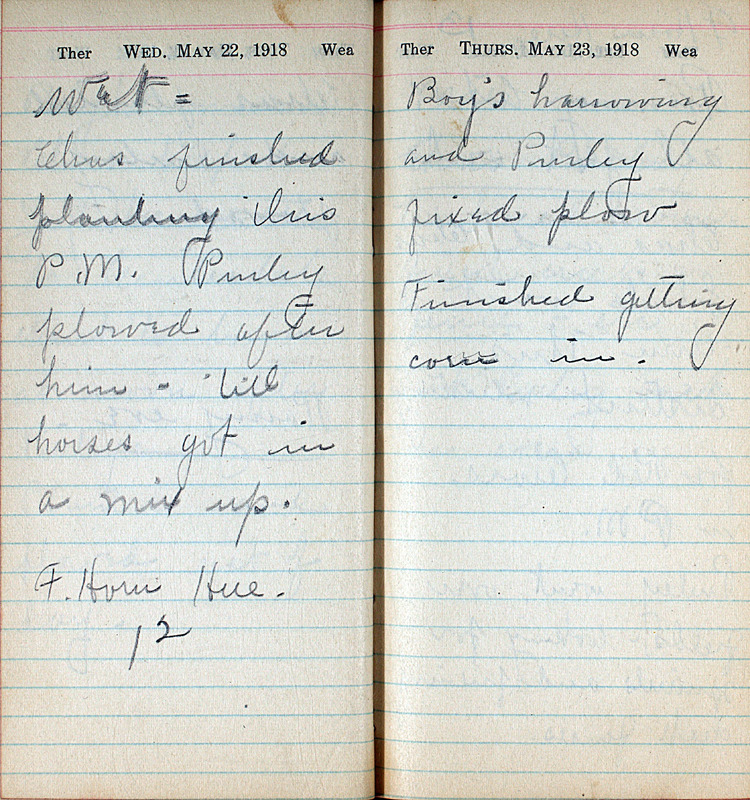 Ther WED. MAY 22, 1918 Wea
Wet =
Chas finished
planting this
P.M. Purley
plowed after
him - 'till
horses got in
a mix up.
F. Horn Hue.
12
Ther THURS. MAY 23, 1918 Wea
Boy's harrowing
and Purley
fixed plow
Finished getting
corn in.